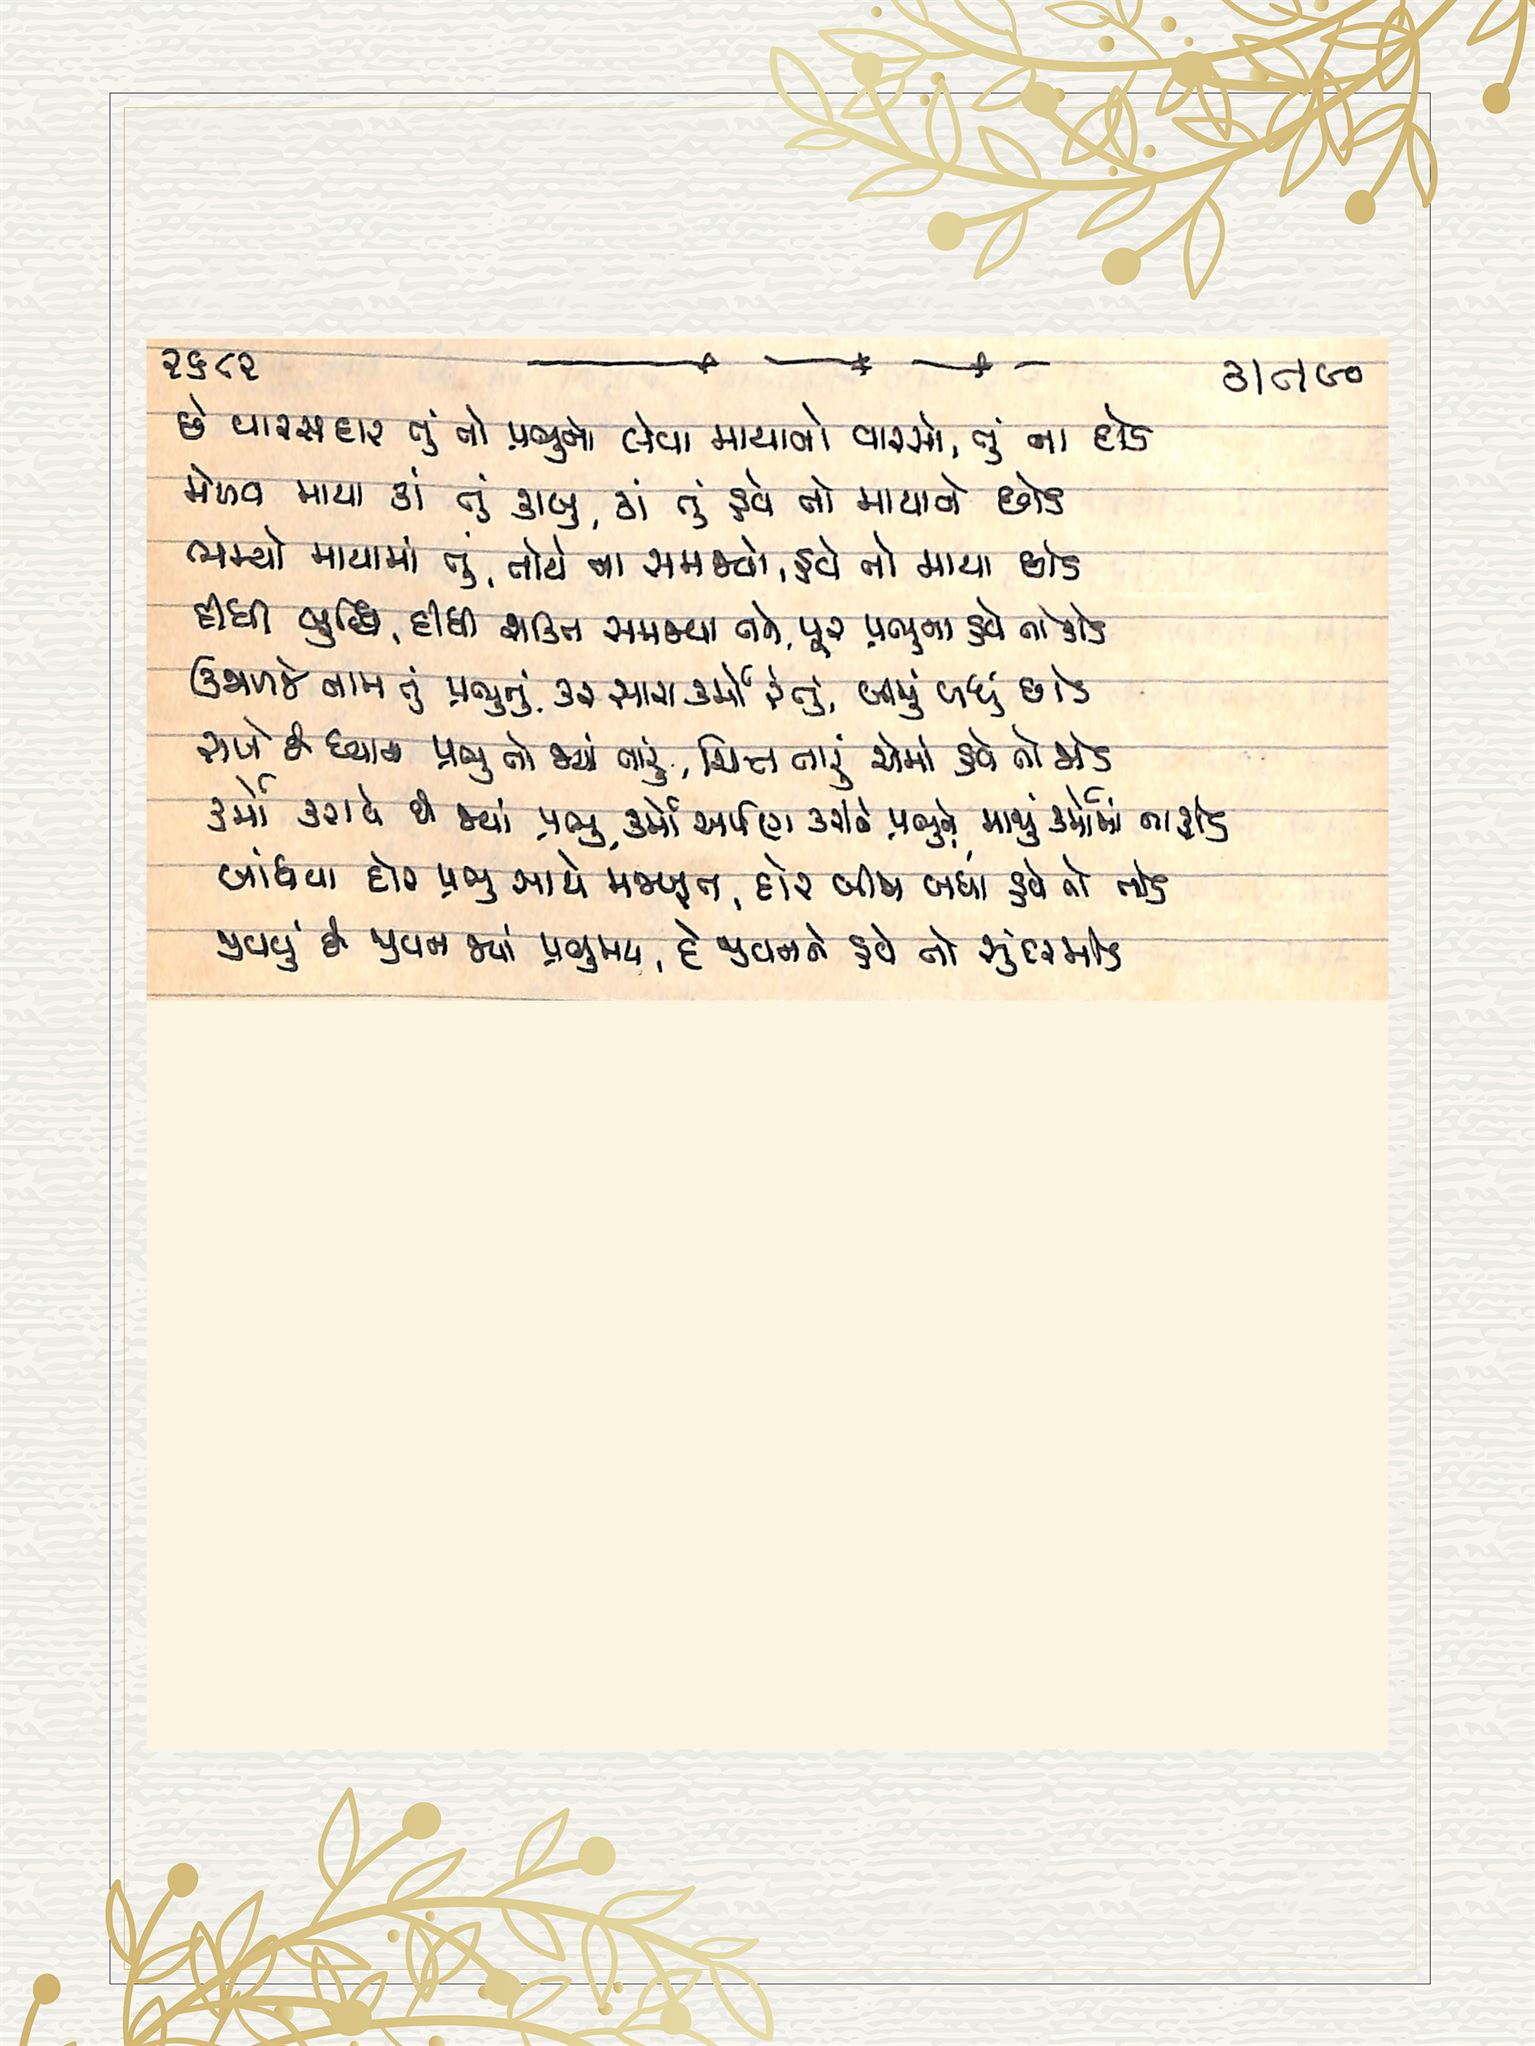 ૨૬૮૨
છે વારસદાર તું તો પ્રભુનો લેવા માયાનો વારસો, તું ના દોડ
મેળવ માયા કાં તું કાબુ, કાં તું હવે તો માયાને છોડ
ભમ્યો માયામાં તું, તોયે ના સમજ્યો, હવે તો માયા છોડ
દીધી બુદ્ધિ, દીધી શક્તિ સમજવા તને, પૂર પ્રભુના હવે તો કોડ
નામ તું પ્રભુનું, કર સારા કર્મો હે તું, બાકી બધું છોડ
છે ધ્યાન પ્રભુ તો જ્યાં તારું, ચિત્ત તારું એમાં હવે તો જોડ
કર્મો કરાવે છે જ્યાં પ્રભુ, કર્મો અર્પણ કરીને પ્રભુને, માથું કર્મોમાં ના ફોડ
બાંધવા દોર પ્રભુ સાથે મજબૂત, દોર બીજા બધા હવે તો તોડ
જીવવું છે જીવન જ્યાં પ્રભુમય, દે જીવનને હવે તો સુંદર મોડ